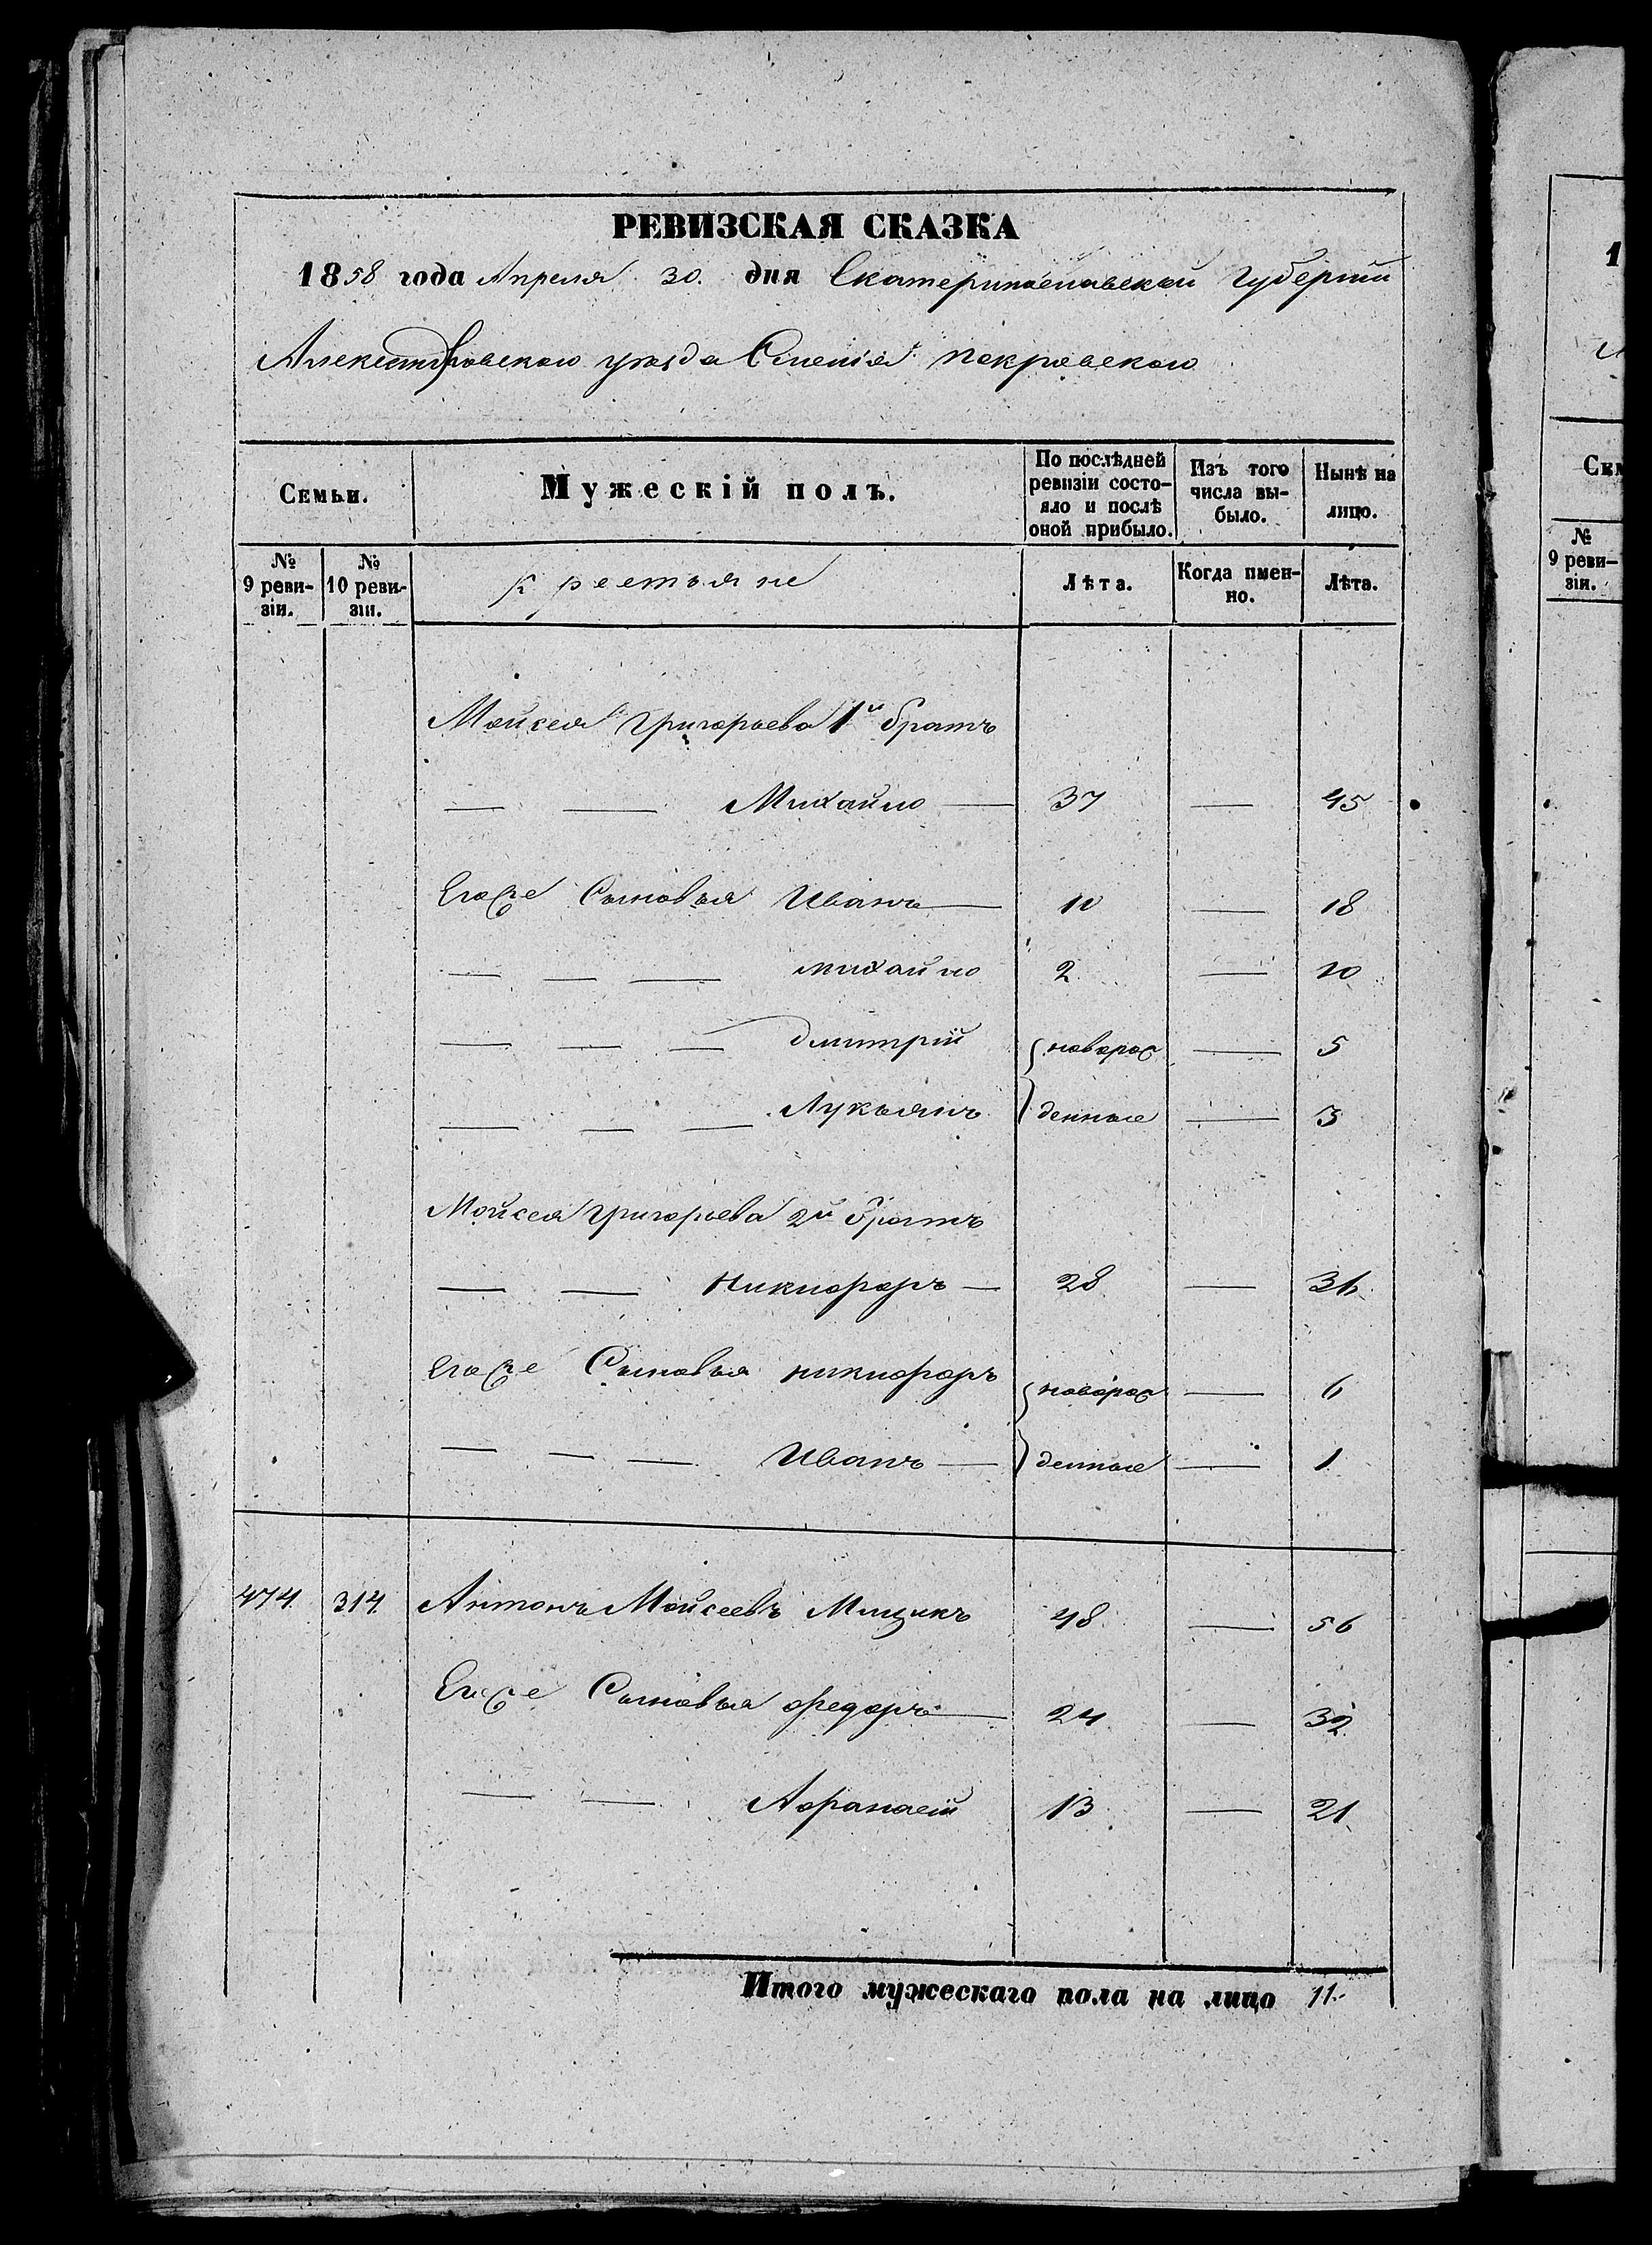 РЕВИЗСКАЯ СКАЗКА
1858 года Апреля 30. дня Екатеринославской Губернии
Александровского уезда Имения Покровского
Семьи.
Мужескій полъ.
По послѣдней ревизіи состо-
яло и послѣ
оной прибыло.
Изъ того
числа вы-
было.
Нынѣ на
лицо.
№
9 реви-
зіи.
№
10 реви-
зіи.
Крестьяне
Лѣта.
Когда имен-
но.
Лѣта.
Мойсея Григорьева 1й братъ
— — Михайло — 37 — 45
Егоже Сыновья Иванъ — 10 — 18
— — — михайло 2 — 10
— — — дмитрій новорож — 5
— — — Лукьянъ денные — 3
Мойсея Григорьева 2й братъ
— — Никифоръ — 28 — 36
Егоже Сыновья никифоръ новорож — 6
— — — Иванъ — денные — 1
474 314 Антонъ Мойсеевъ Мищикъ 48 — 56
Егоже Сыновья федоръ — 24 — 32
— — Афанасій 13 — 21
Итого мужескаго пола на лицо 11.
1
Сем
№
9 реви-
зіи.